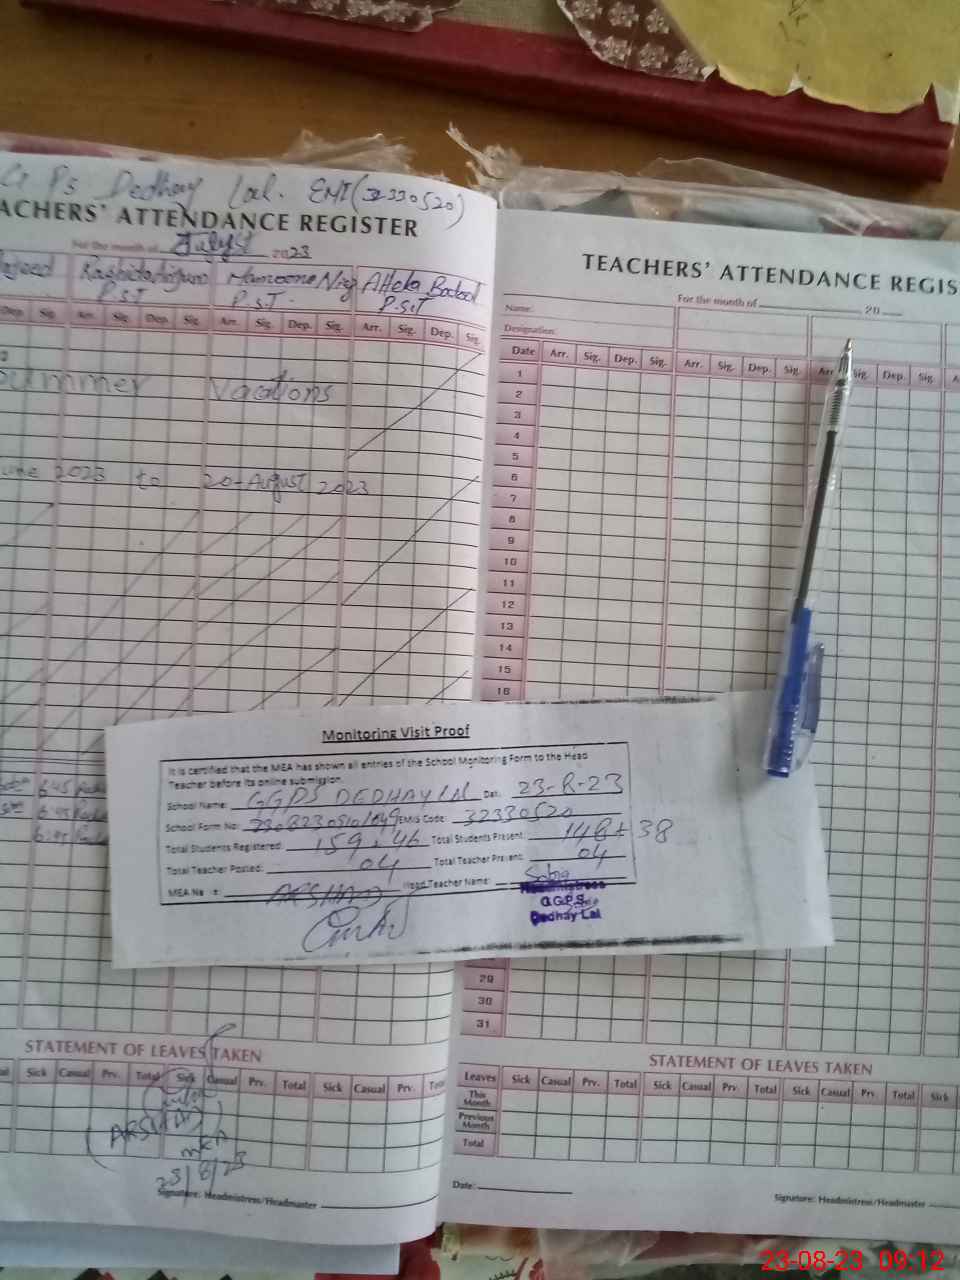 G Ps Dedhay Lal. EMI(32330520)
ACHERS' ATTENDANCE REGISTER
For the month of July 2023
P.S.T P.S.T. P.S.T
Dep. Sig. Arr. Sig. Dep. Sig. Arr. Sig. Dep. Sig. Arr. Sig. Dep. Sig.
Summer Vacations
une 2023 to 20-August 2023
6:45
6:45
6:45
STATEMENT OF LEAVES TAKEN
Sick Casual Prv. Total Sick Casual Prv. Total Sick Casual Prv. Tota
(ARSHAD)
MEA
23/8/23
Signature: Headmistress/Headmaster
TEACHERS' ATTENDANCE REGIS
For the month of 20
Name:
Designation:
Date Arr. Sig. Dep. Sig. Arr. Sig. Dep. Sig. Arr. Sig. Dep. Sig. A
1
2
3
4
5
6
7
8
9
10
11
12
13
14
15
16
Monitoring Visit Proof
It is certified that the MEA has shown all entries of the School Monitoring Form to the Head
Teacher before its online submission.
School Name: GGPS DEDHAY LAL Dat. 23-8-23
School Form No: EMIS Code: 32330520
Total Students Registered: 159+46 Total Students Present: 148+38
Total Teacher Posted: 04 Total Teacher Present: 04
MEA Na e: ARSHAD Head Teacher Name: Sobia
Headmistress
G.G.P.S
Dedhay Lal
29
30
31
STATEMENT OF LEAVES TAKEN
Leaves Sick Casual Prv. Total Sick Casual Prv. Total Sick Casual Prv. Total Sick
This Month
Previous Month
Total
Date:
Signature: Headmistress/Headmaster
23-08-23 09:12